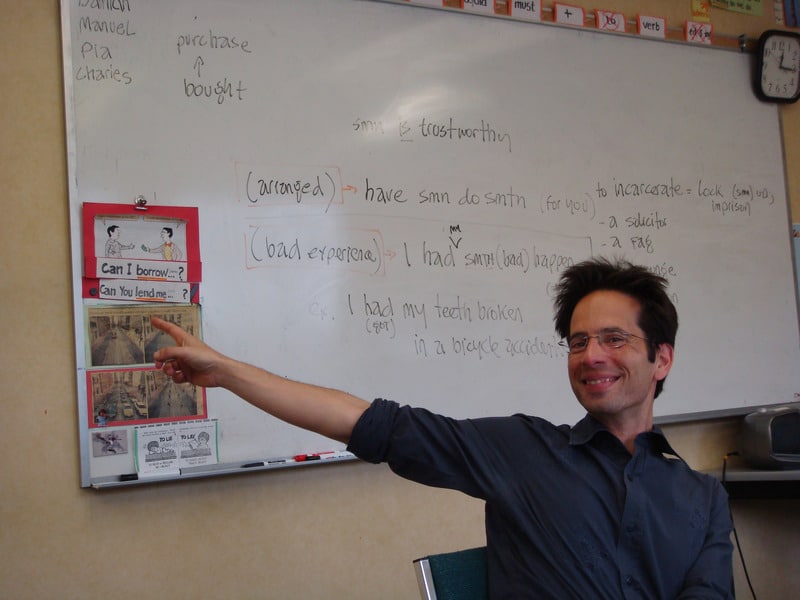 Damian
Manuel
Pia
Charles
purchase
↑
bought
must
+
verb
smn is trustworthy
(arranged) → have smn do smtn (for you)
(bad experience) → I had smtn (bad) happen
my
ex. I had my teeth broken
(got)
in a bicycle accident
to incarcerate = lock (smn) up,
imprison
- a solicitor
- a fag
Can I borrow...?
Can You lend me... ?
TO LIE
TO LAY